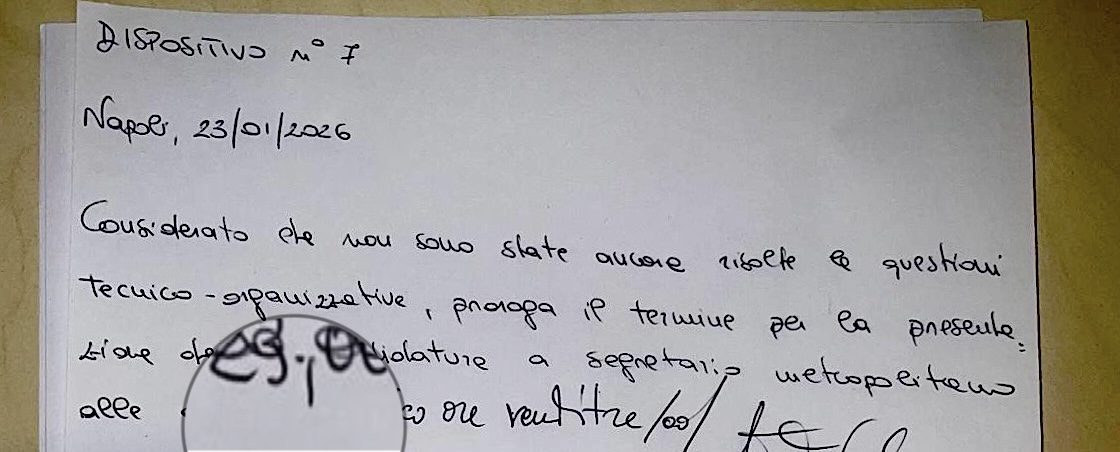 DISPOSITIVO N° 7
Napoli, 23/01/2026
Considerato che non sono state ancora risolte le questioni
tecnico-organizzative, proroga il termine per la presenta=
zione a segretario metropolitano
alle ore ventitre/00/